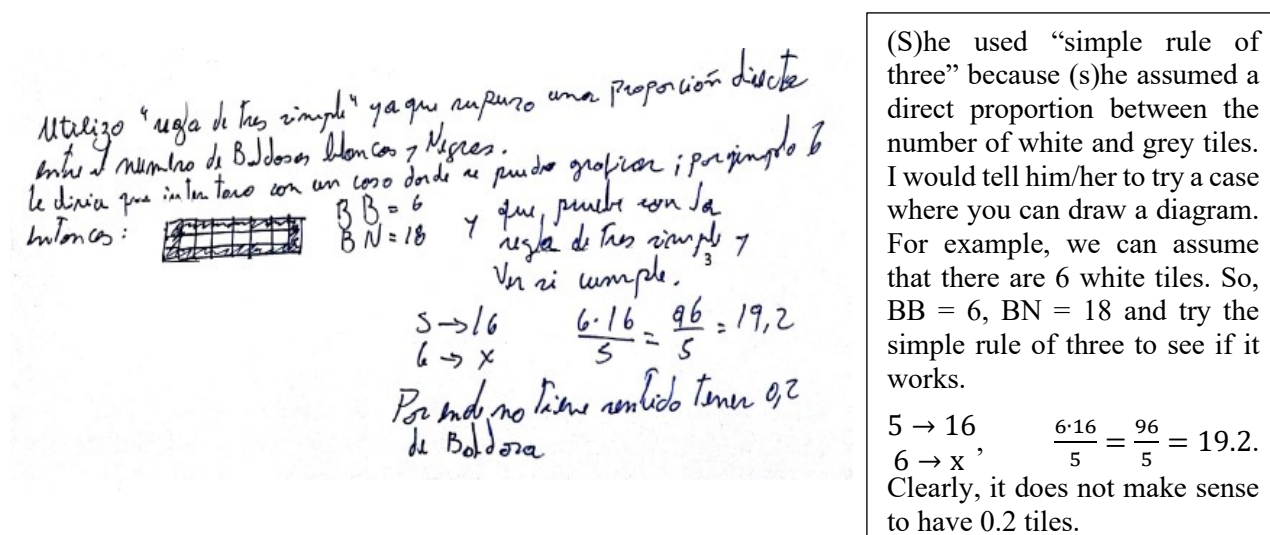 Utilizo "regla de tres simple" ya que supuso una proporción directa
entre el numero de Baldosas blancas y Negras.
le diria que intentara con un caso donde se pueda graficar; por ejemplo 6
entonces:
B B = 6
B N = 18
y que, pruebe con la
regla de tres simple y
Ver si cumple.
5 → 16
6 → x
6·16/5 = 96/5 = 19,2
Por ende no Tiene sentido Tener 0,2
de Baldosa
(S)he used “simple rule of
three” because (s)he assumed a
direct proportion between the
number of white and grey tiles.
I would tell him/her to try a case
where you can draw a diagram.
For example, we can assume
that there are 6 white tiles. So,
BB = 6, BN = 18 and try the
simple rule of three to see if it
works.
5 → 16
6 → x , 6·16/5 = 96/5 = 19.2.
Clearly, it does not make sense
to have 0.2 tiles.